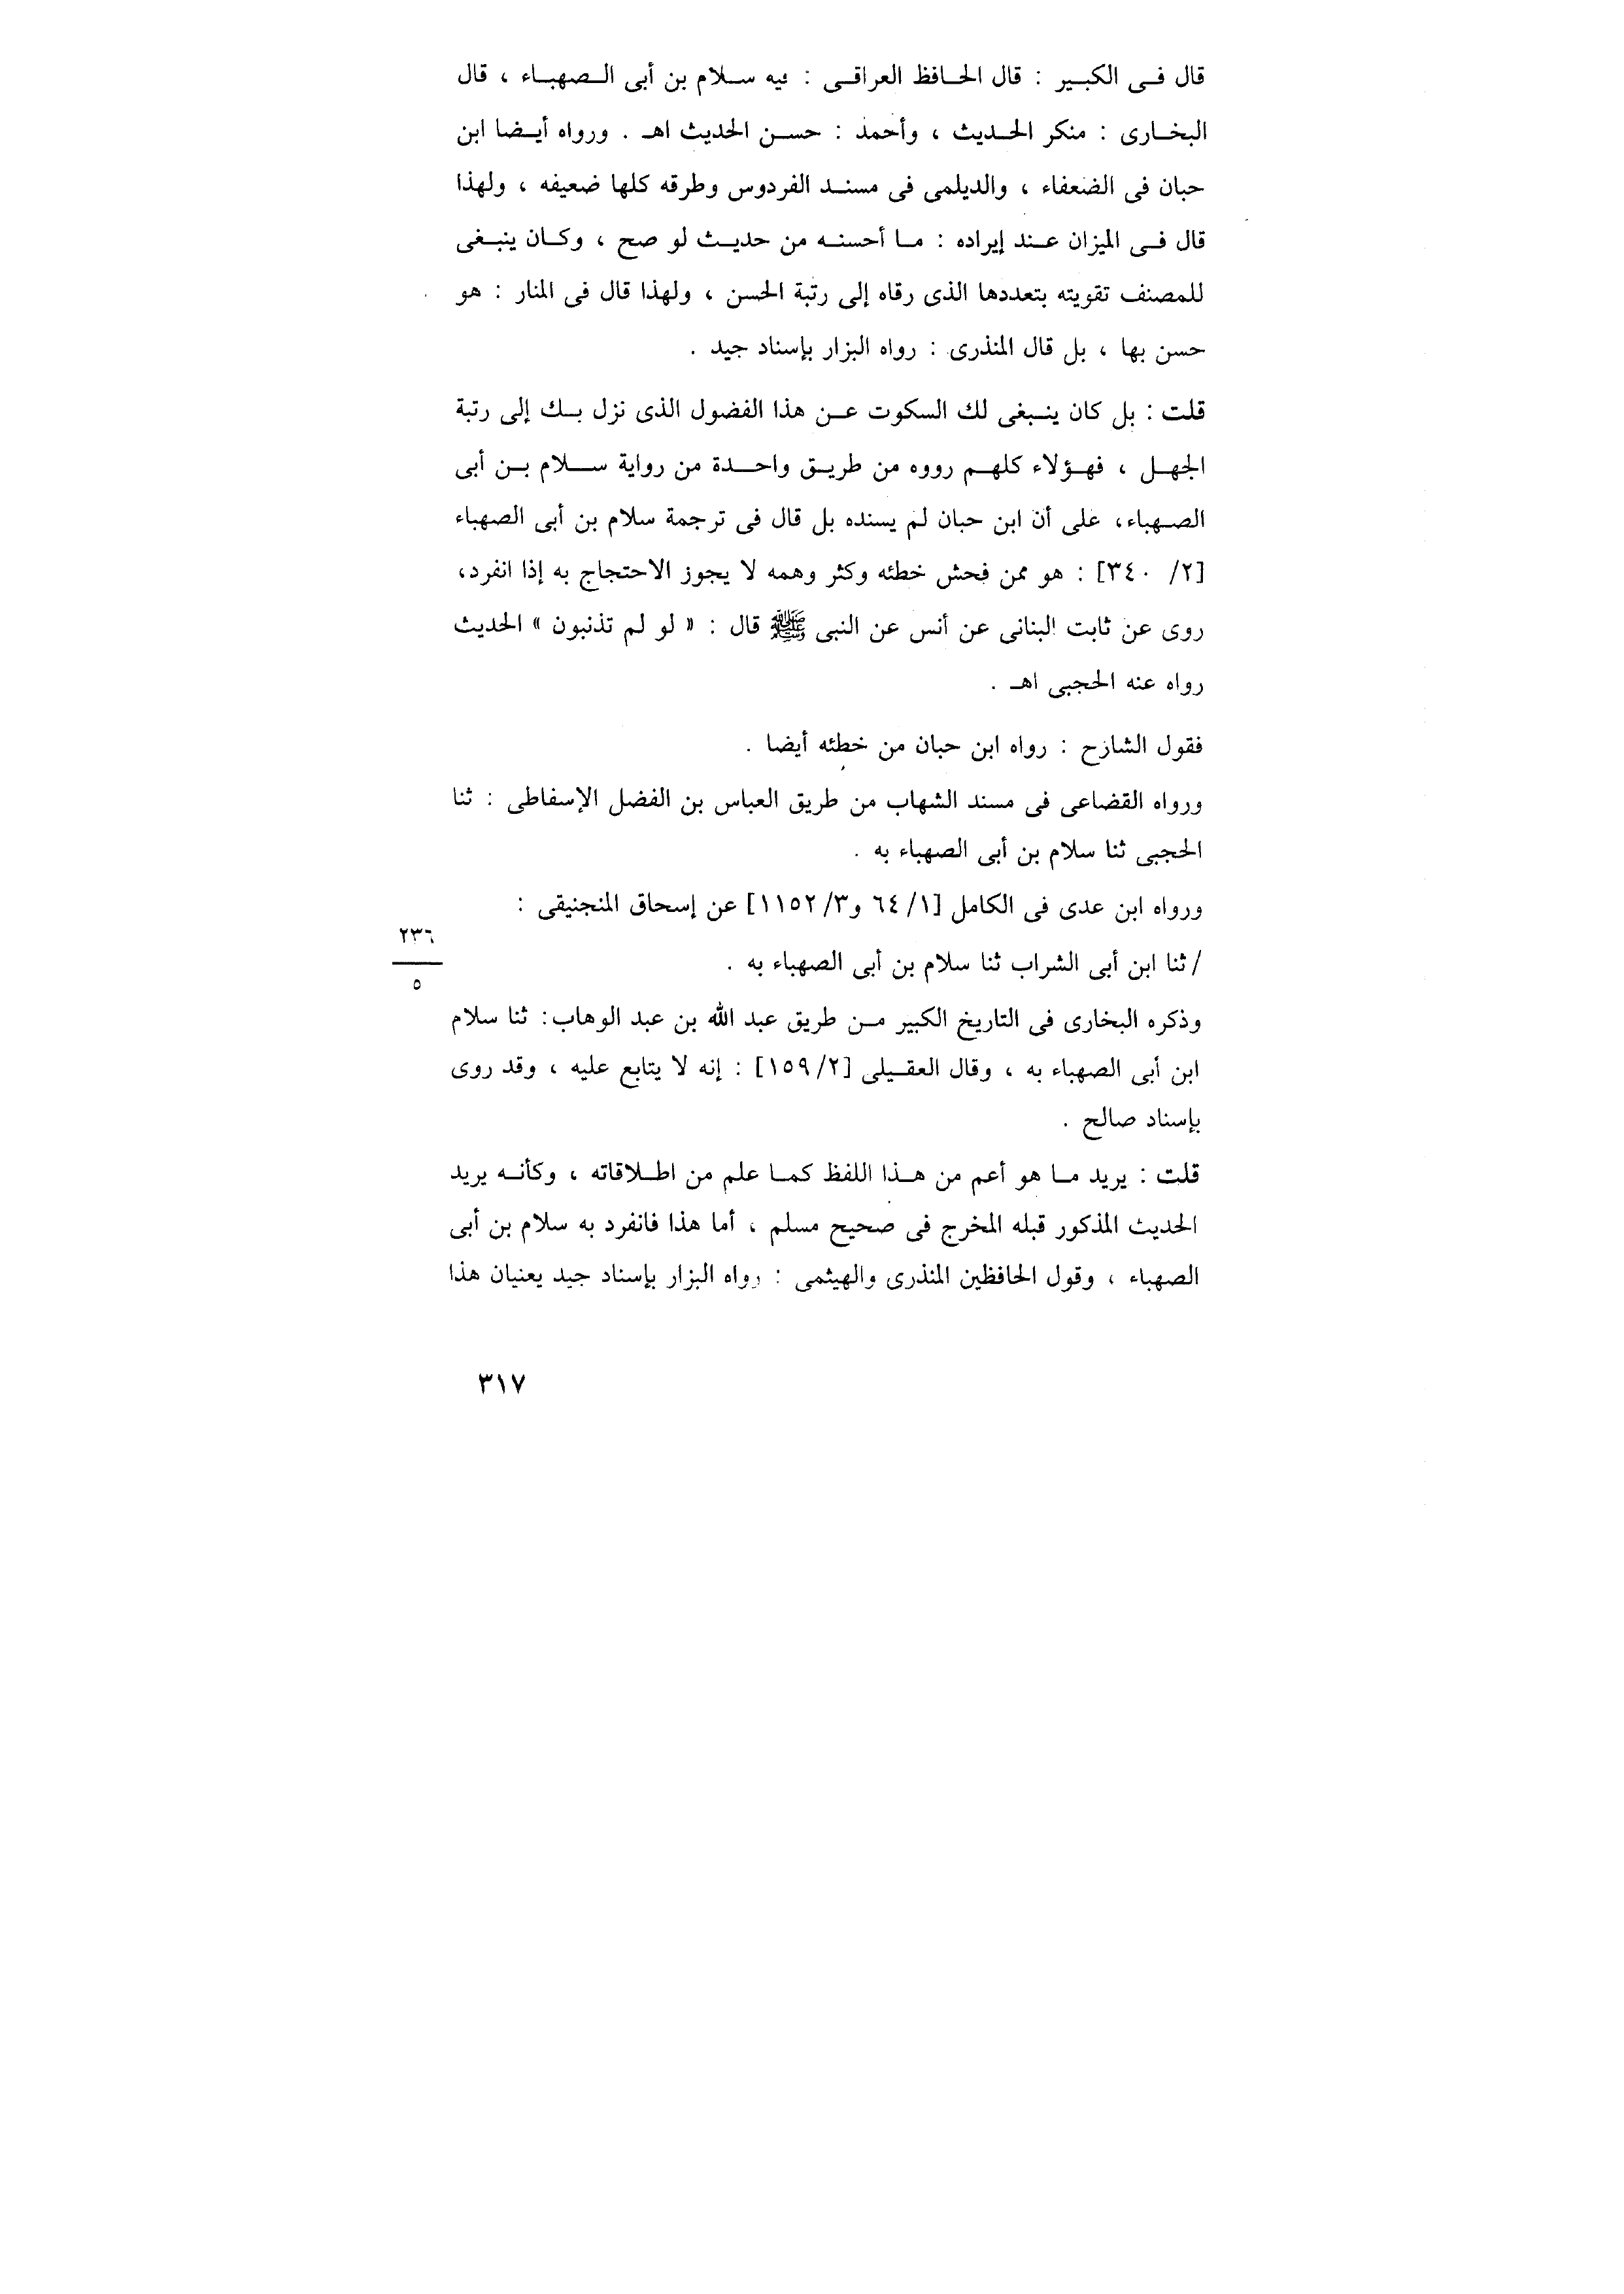 قال فى الكبير : قال الحافظ العراقى : فيه سلام بن أبى الصهباء ، قال
البخارى : منكر الحديث ، وأحمد : حسن الحديث اهـ . ورواه أيضا ابن
حبان فى الضعفاء ، والديلمى فى مسند الفردوس وطرقه كلها ضعيفه ، ولهذا
قال فى الميزان عند إيراده : ما أحسنه من حديث لو صح ، وكان ينبغى
للمصنف تقويته بتعددها الذى رقاه إلى رتبة الحسن ، ولهذا قال فى المنار : هو
حسن بها ، بل قال المنذرى : رواه البزار بإسناد جيد .
قلت : بل كان ينبغى لك السكوت عن هذا الفضول الذى نزل بك إلى رتبة
الجهل ، فهؤلاء كلهم رووه من طريق واحدة من رواية سلام بن أبى
الصهباء، على أن ابن حبان لم يسنده بل قال فى ترجمة سلام بن أبى الصهباء
[٢/ ٣٤٠] : هو ممن فحش خطئه وكثر وهمه لا يجوز الاحتجاج به إذا انفرد،
روى عن ثابت البنانى عن أنس عن النبى ﷺ قال : « لو لم تذنبون » الحديث
رواه عنه الحجبى اهـ .
فقول الشارح : رواه ابن حبان من خطئه أيضا .
ورواه القضاعى فى مسند الشهاب من طريق العباس بن الفضل الإسفاطى : ثنا
الحجبى ثنا سلام بن أبى الصهباء به .
ورواه ابن عدى فى الكامل [١/ ٦٤ و٣/ ١١٥٢] عن إسحاق المنجنيقى :
٢٣٦
/ ثنا ابن أبى الشراب ثنا سلام بن أبى الصهباء به .
٥
وذكره البخارى فى التاريخ الكبير من طريق عبد الله بن عبد الوهاب: ثنا سلام
ابن أبى الصهباء به ، وقال العقيلى [٢/ ١٥٩] : إنه لا يتابع عليه ، وقد روى
بإسناد صالح .
قلت : يريد ما هو أعم من هذا اللفظ كما علم من اطلاقاته ، وكأنه يريد
الحديث المذكور قبله المخرج فى صحيح مسلم ، أما هذا فانفرد به سلام بن أبى
الصهباء ، وقول الحافظين المنذرى والهيثمى : رواه البزار بإسناد جيد يعنيان هذا
٣١٧